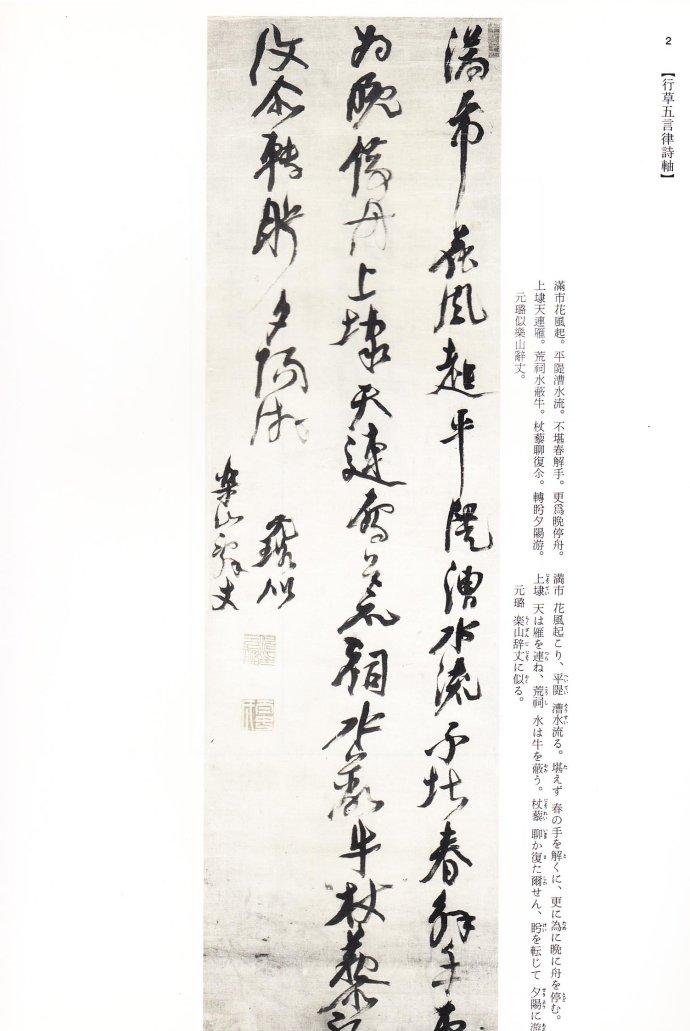 2
【行草五言律詩軸】
滿市花風起。平隄漕水流。不堪春解手。更爲晩停舟。
上埭天連雁。荒祠水蔽牛。杖藜聊復尒。轉盻夕陽游。
元璐似樂山辭丈。
満市 花風起こり、平隄 漕水流る。堪えず 春の手を解くに、更に為に晩に舟を停む。
上埭 天は雁を連ね、荒祠 水は牛を蔽う。杖藜 聊か復た爾せん、盻を転じて 夕陽に游
元璐 楽山辞丈に似る。
滿市花風起平隄漕水流不堪春解手更
為晚停舟上埭天連雁荒祠水蔽牛杖藜聊
復尒轉盻夕陽游
元璐似
樂山辭丈